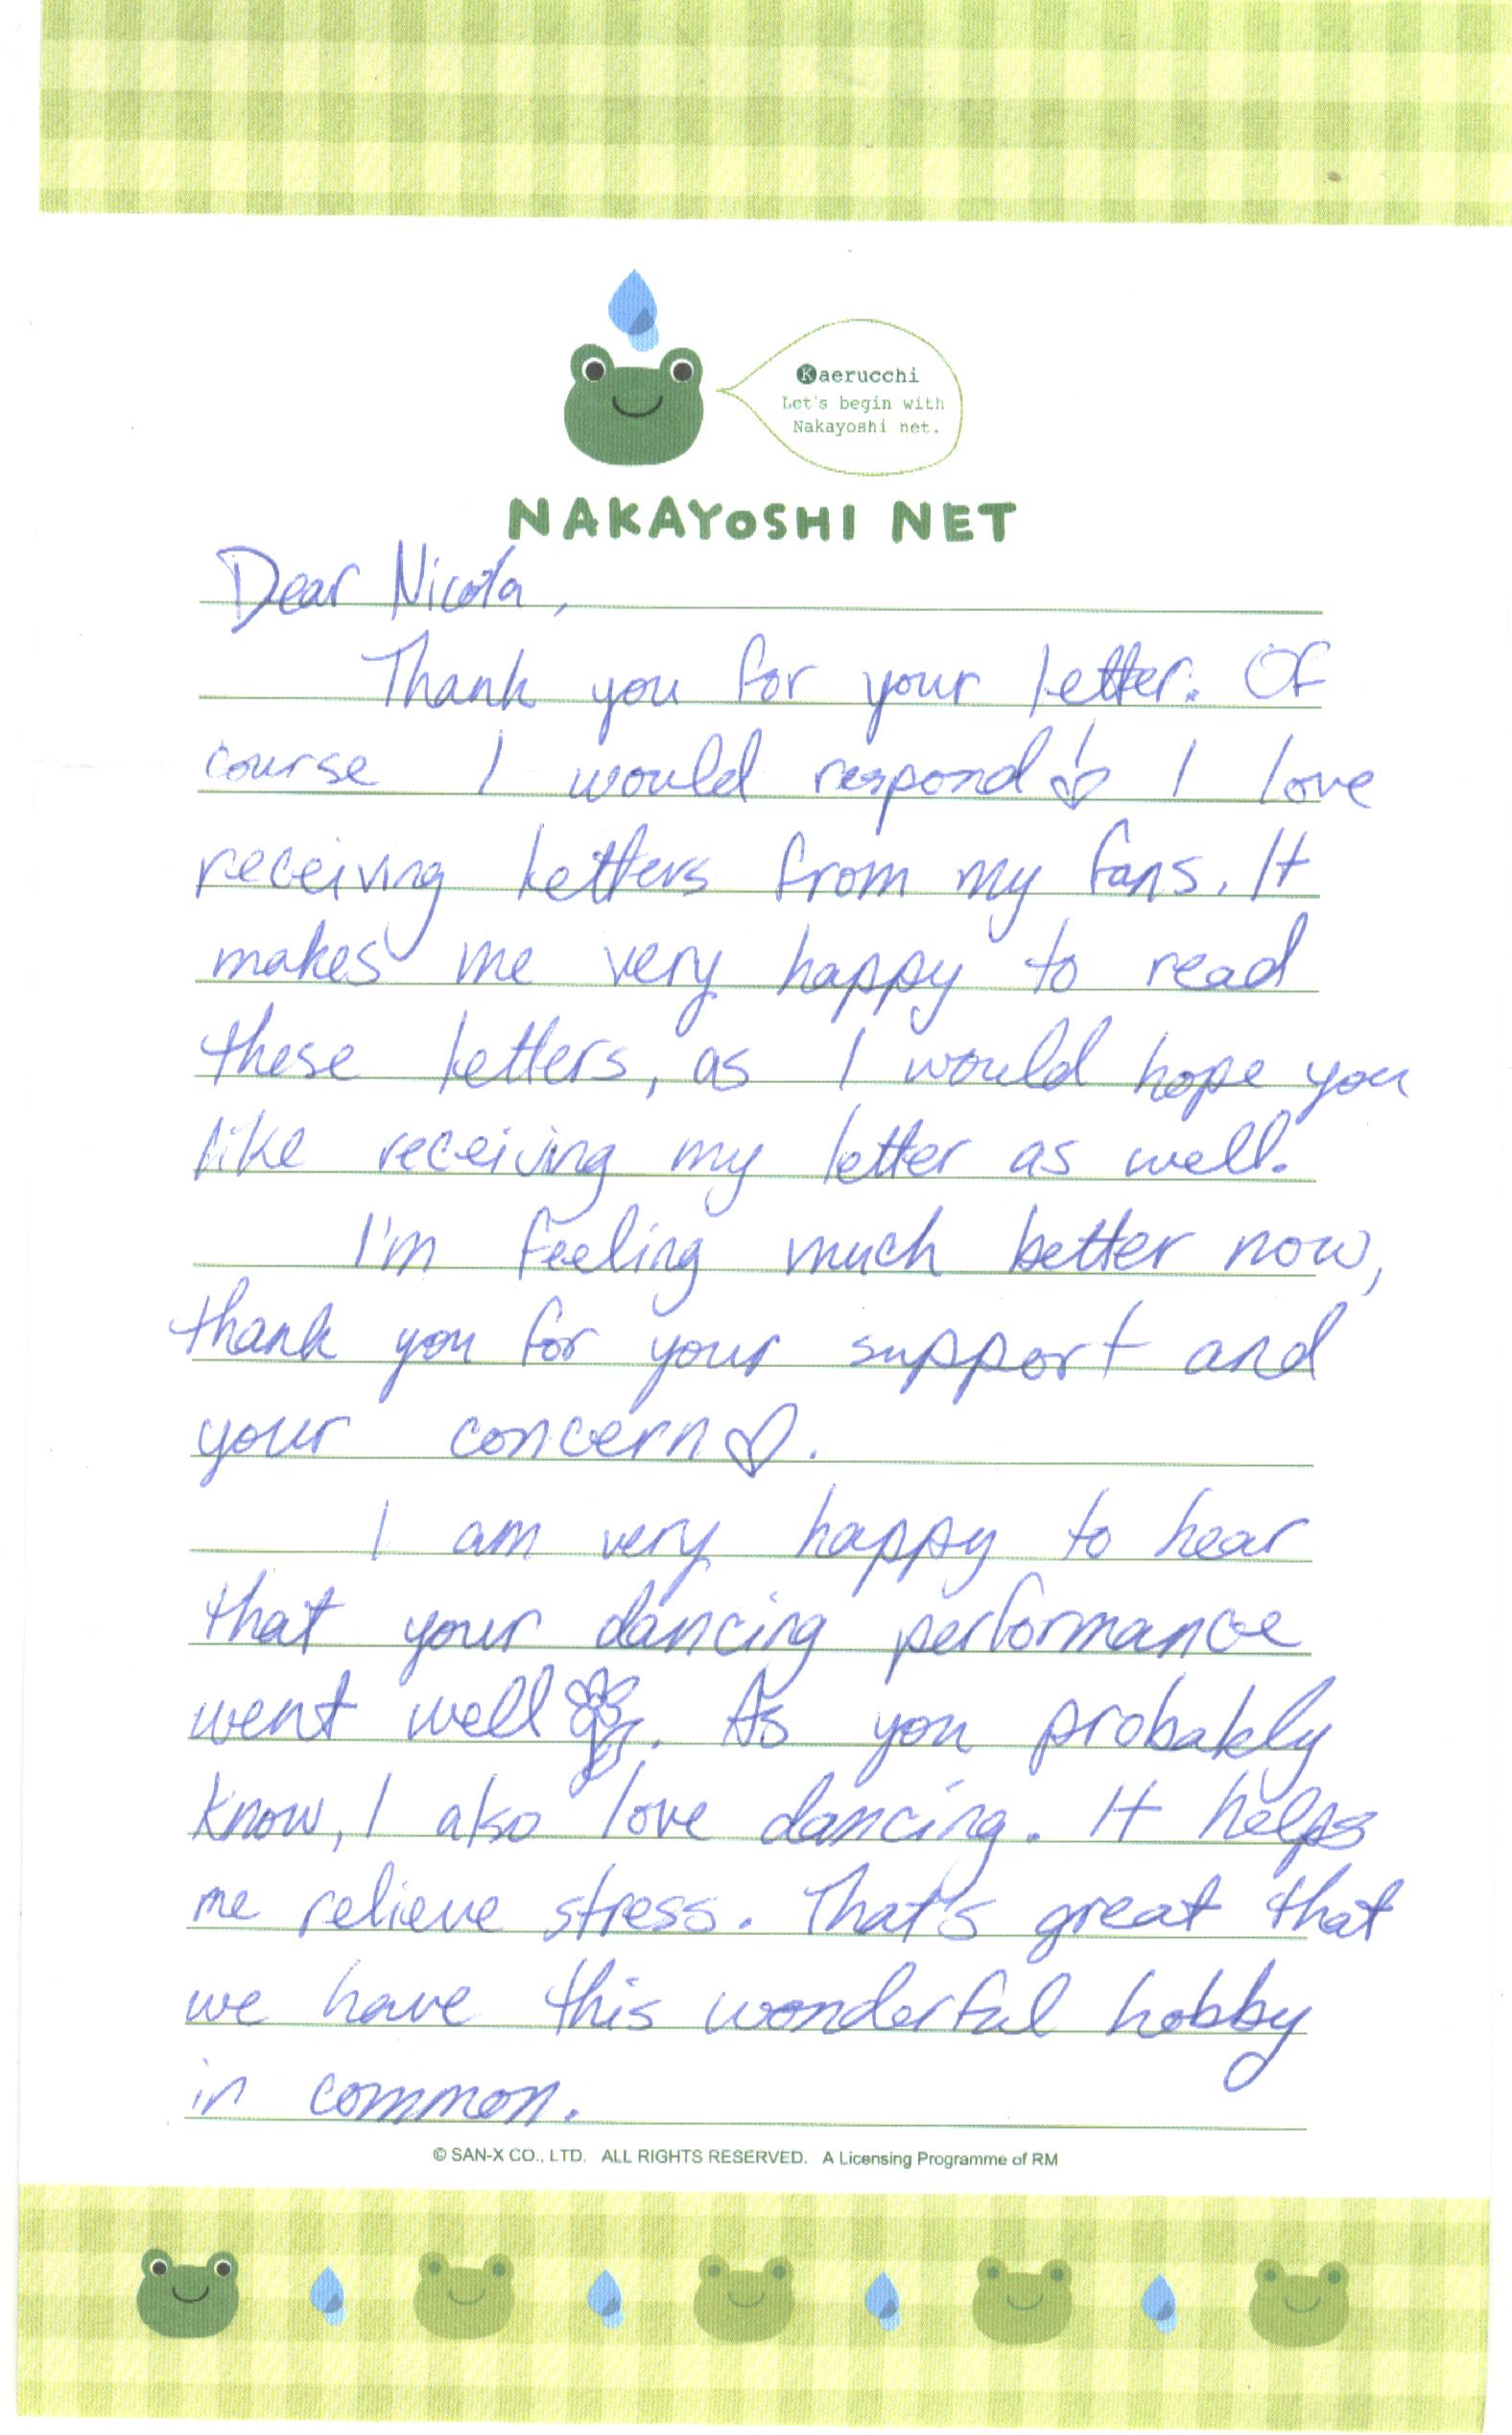 Kaerucchi
Let's begin with
Nakayoshi net.
NAKAYOSHI NET
Dear Nicola,
Thank you for your letter. Of
course I would respond! I love
receiving letters from my fans. It
makes me very happy to read
these letters, as I would hope you
like receiving my letter as well.
I'm feeling much better now,
thank you for your support and
your concern♡.
I am very happy to hear
that your dancing performance
went well. As you probably
know, I also love dancing. It helps
me relieve stress. That's great that
we have this wonderful hobby
in common.
© SAN-X CO., LTD. ALL RIGHTS RESERVED. A Licensing Programme of RM